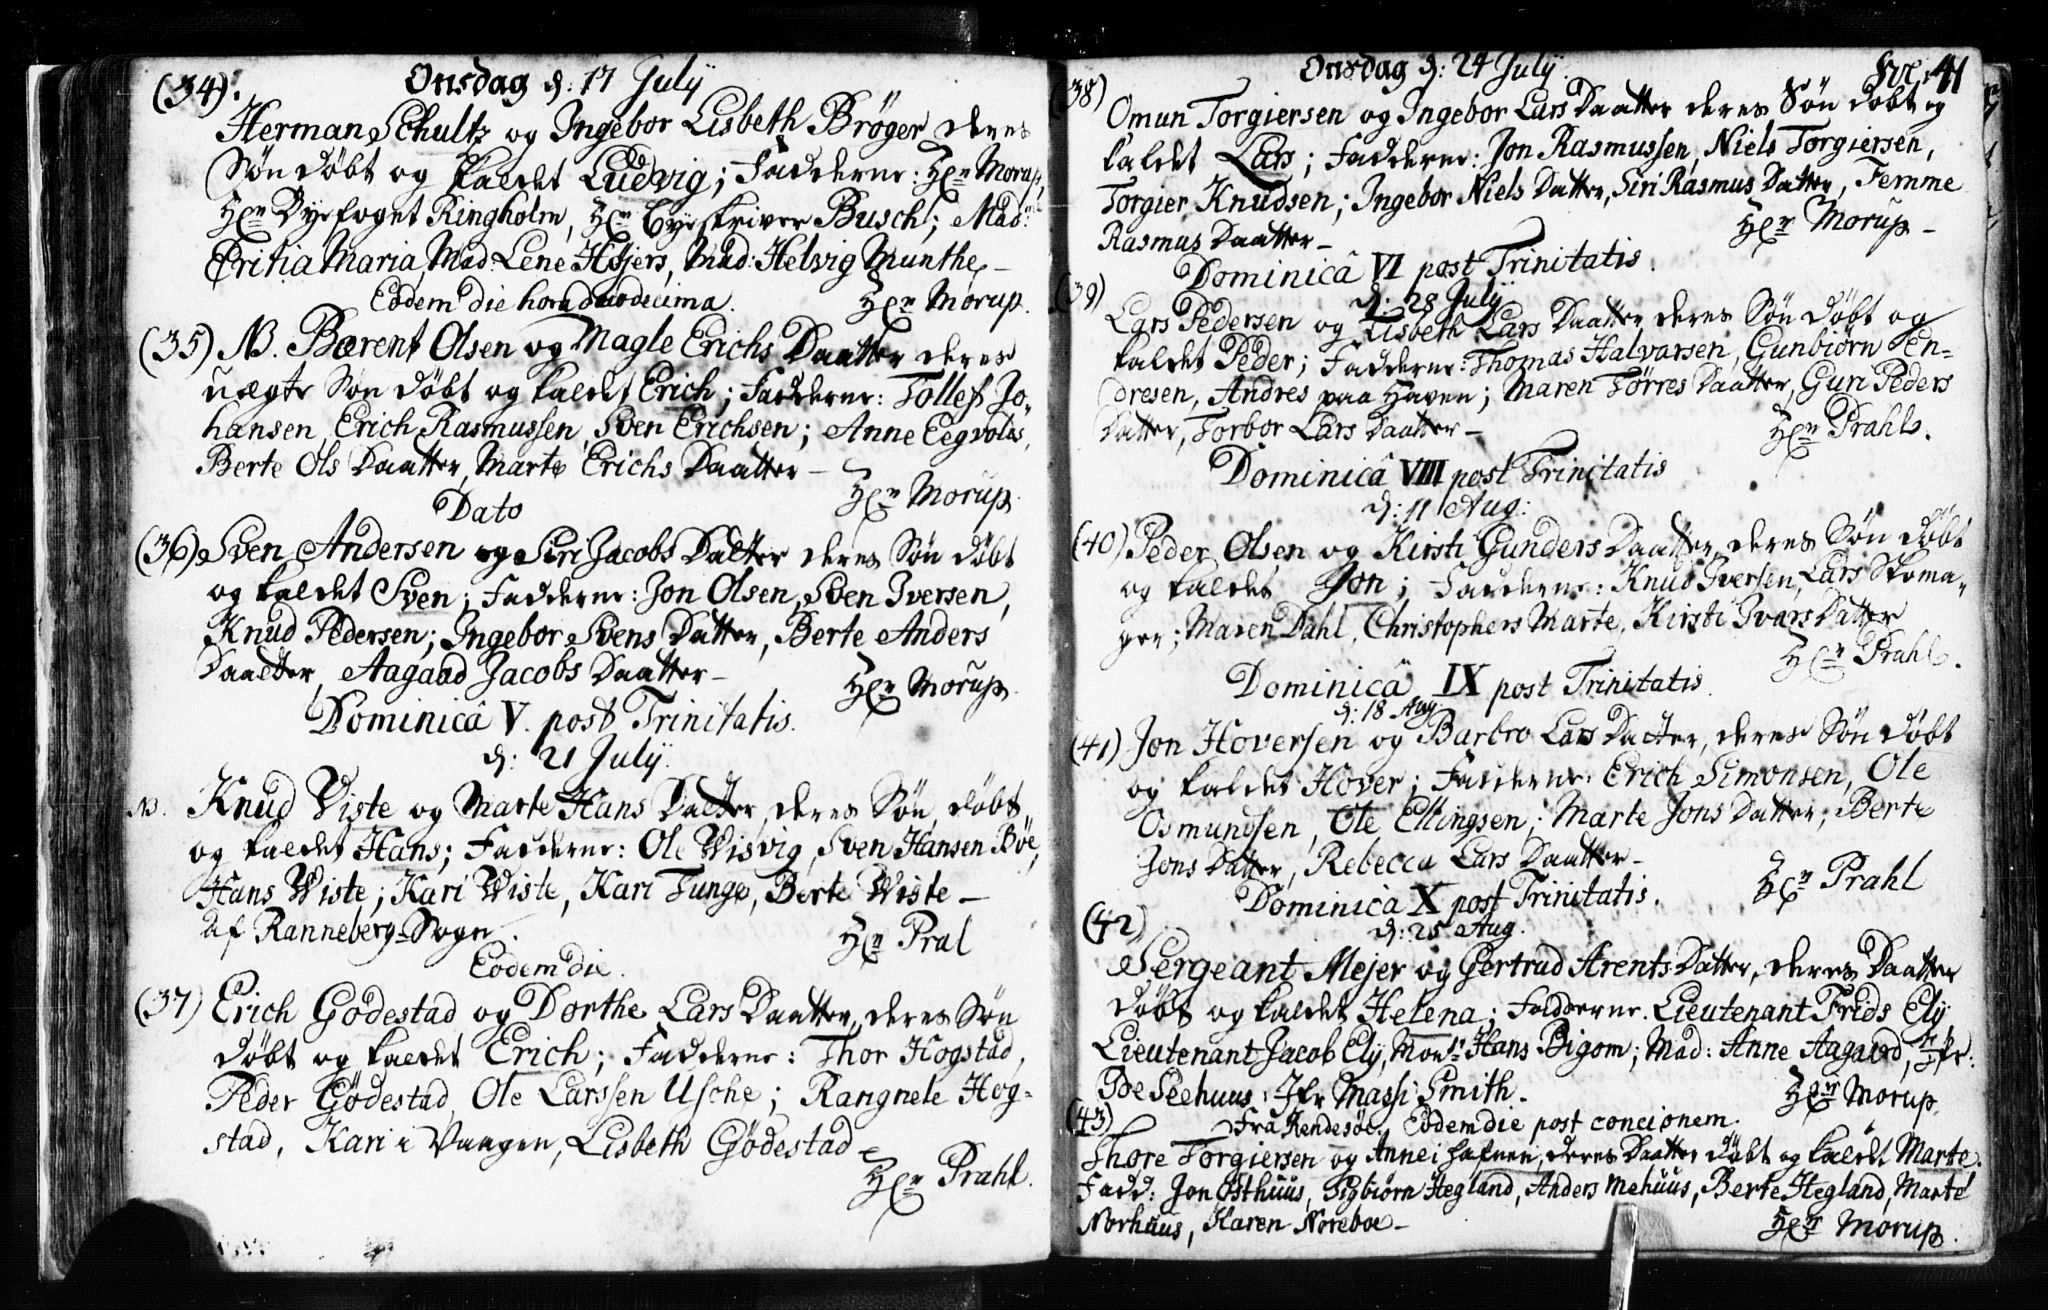 Onsdag d: 17 July
(34). Herman Schultz og Ingebor Lisbeth Brøger deres
Søn døbt og kaldet Ludvig; Fadderne: Hr Morup,
Hr Byefoget Ringholm, Hr Byeskriver Busch; Mad:
Maria, Mad: Lene Hejers, Mad: Helvig Munthe,
Eodem die hora duodecima. Hr Morup.
(35) NB. Bærent Olsen og Magle Erichs Daatter deres
uægte Søn døbt og kaldet Erich; Fadderne: Tollef Jo-
hansen, Erich Rasmussen, Sven Erichsen; Anne Eegvolds,
Berte Ols Daatter, Marte Erichs Daatter –
Dato Hr Morup.
(36) Sven Andersen og Siri Jacobs Datter deres Søn døbt
og kaldet Sven; Fadderne: Jon Olsen, Sven Iversen,
Knud Pedersen; Ingebor Svens Datter, Berte Anders
Daatter, Aagaad Jacobs Daatter –
Hr Morup.
Dominicâ V. post Trinitatis.
d: 21 July.
NB. Knud Viste og Marte Hans Datter, deres Søn, døbt
og kaldet Hans; Fadderne: Ole Visvig, Sven Hansen Bøe,
Hans Viste; Kari Viste, Kari Tunge, Berte Viste –
Af Ranneberg-Sogn. Hr Pral
Eodem die.
(37) Erich Gödestad og Dorthe Lars Daatter, deres Søn
døbt og kaldet Erich; Fadderne: Thor Hogstad,
Peder Gödestad, Ole Larssen Usche; Rangnele Hog-
stad, Kari i Vaagen, Lisbeth Gödestad –
Hr Prahl.
Onsdag d: 24 July. 41
(38) Omun Torgiersen og Ingebor Lars Daatter deres Søn døbt og
kaldet Lars; Fadderne: Jon Rasmussen, Niels Torgiersen,
Torgier Knudsen; Ingebor Niels Datter, Siri Rasmus Datter, Femme
Rasmus Daatter – Hr Morup –
Dominicâ VI post Trinitatis.
d: 28 July
(39) Lars Pedersen og Lisbeth Lars Daatter deres Søn døbt og
kaldet Peder; Fadderne: Thomas Halvarsen, Gunbiørn En-
dresen, Andres paa Haven; Maren Törres Daatter, Guri Peders
Datter, Torbor Lars Daatter – Hr Prahl.
Dominicâ VIII post Trinitatis
d: 11 Aug:
(40) Peder Olsen og Kirsti Gunders Daatter, deres Søn døbt
og kaldet Jon; Fadderne: Knud Iversen, Lars Skoma-
ger; Maren Dahl, Christophers Marte, Kirsti Ivars Datter
Hr Prahl.
Dominicâ IX post Trinitatis.
d: 18 Aug
(41) Jon Hoversen og Barbro Lars Datter, deres Søn døbt
og kaldet Hover; Fadderne: Erich Simonsen, Ole
Osmundsen, Ole Ellingsen; Marte Jons Datter; Berte
Jons Datter, Rebecca Lars Daatter –
Hr Prahl
Dominica X post Trinitatis.
d: 25 Aug.
(42) Sergeant Mejer og Gertrud Arents Datter, deres Daatter
døbt og kaldet Helena; Fadderne. Lieutenant Frids Ely
Lieutenant Jacob Ely, Monsr Hans Bigom; Mad: Anne Aagaard, Jfr:
Seehuus, Jfr Massi Smith. Hr Morup.
(43) Fra Rendesöe. Eodem die post concionem.
Thore Torgiersen og Anne i Hafnen, deres Daatter døbt og kaldet Marte.
Fadd: Jon Østhuus, Sigbiørn Hegland, Anders Mehuus, Berte Hegland, Marte
Norhuus, Karen Noreboe – Hr Morup.